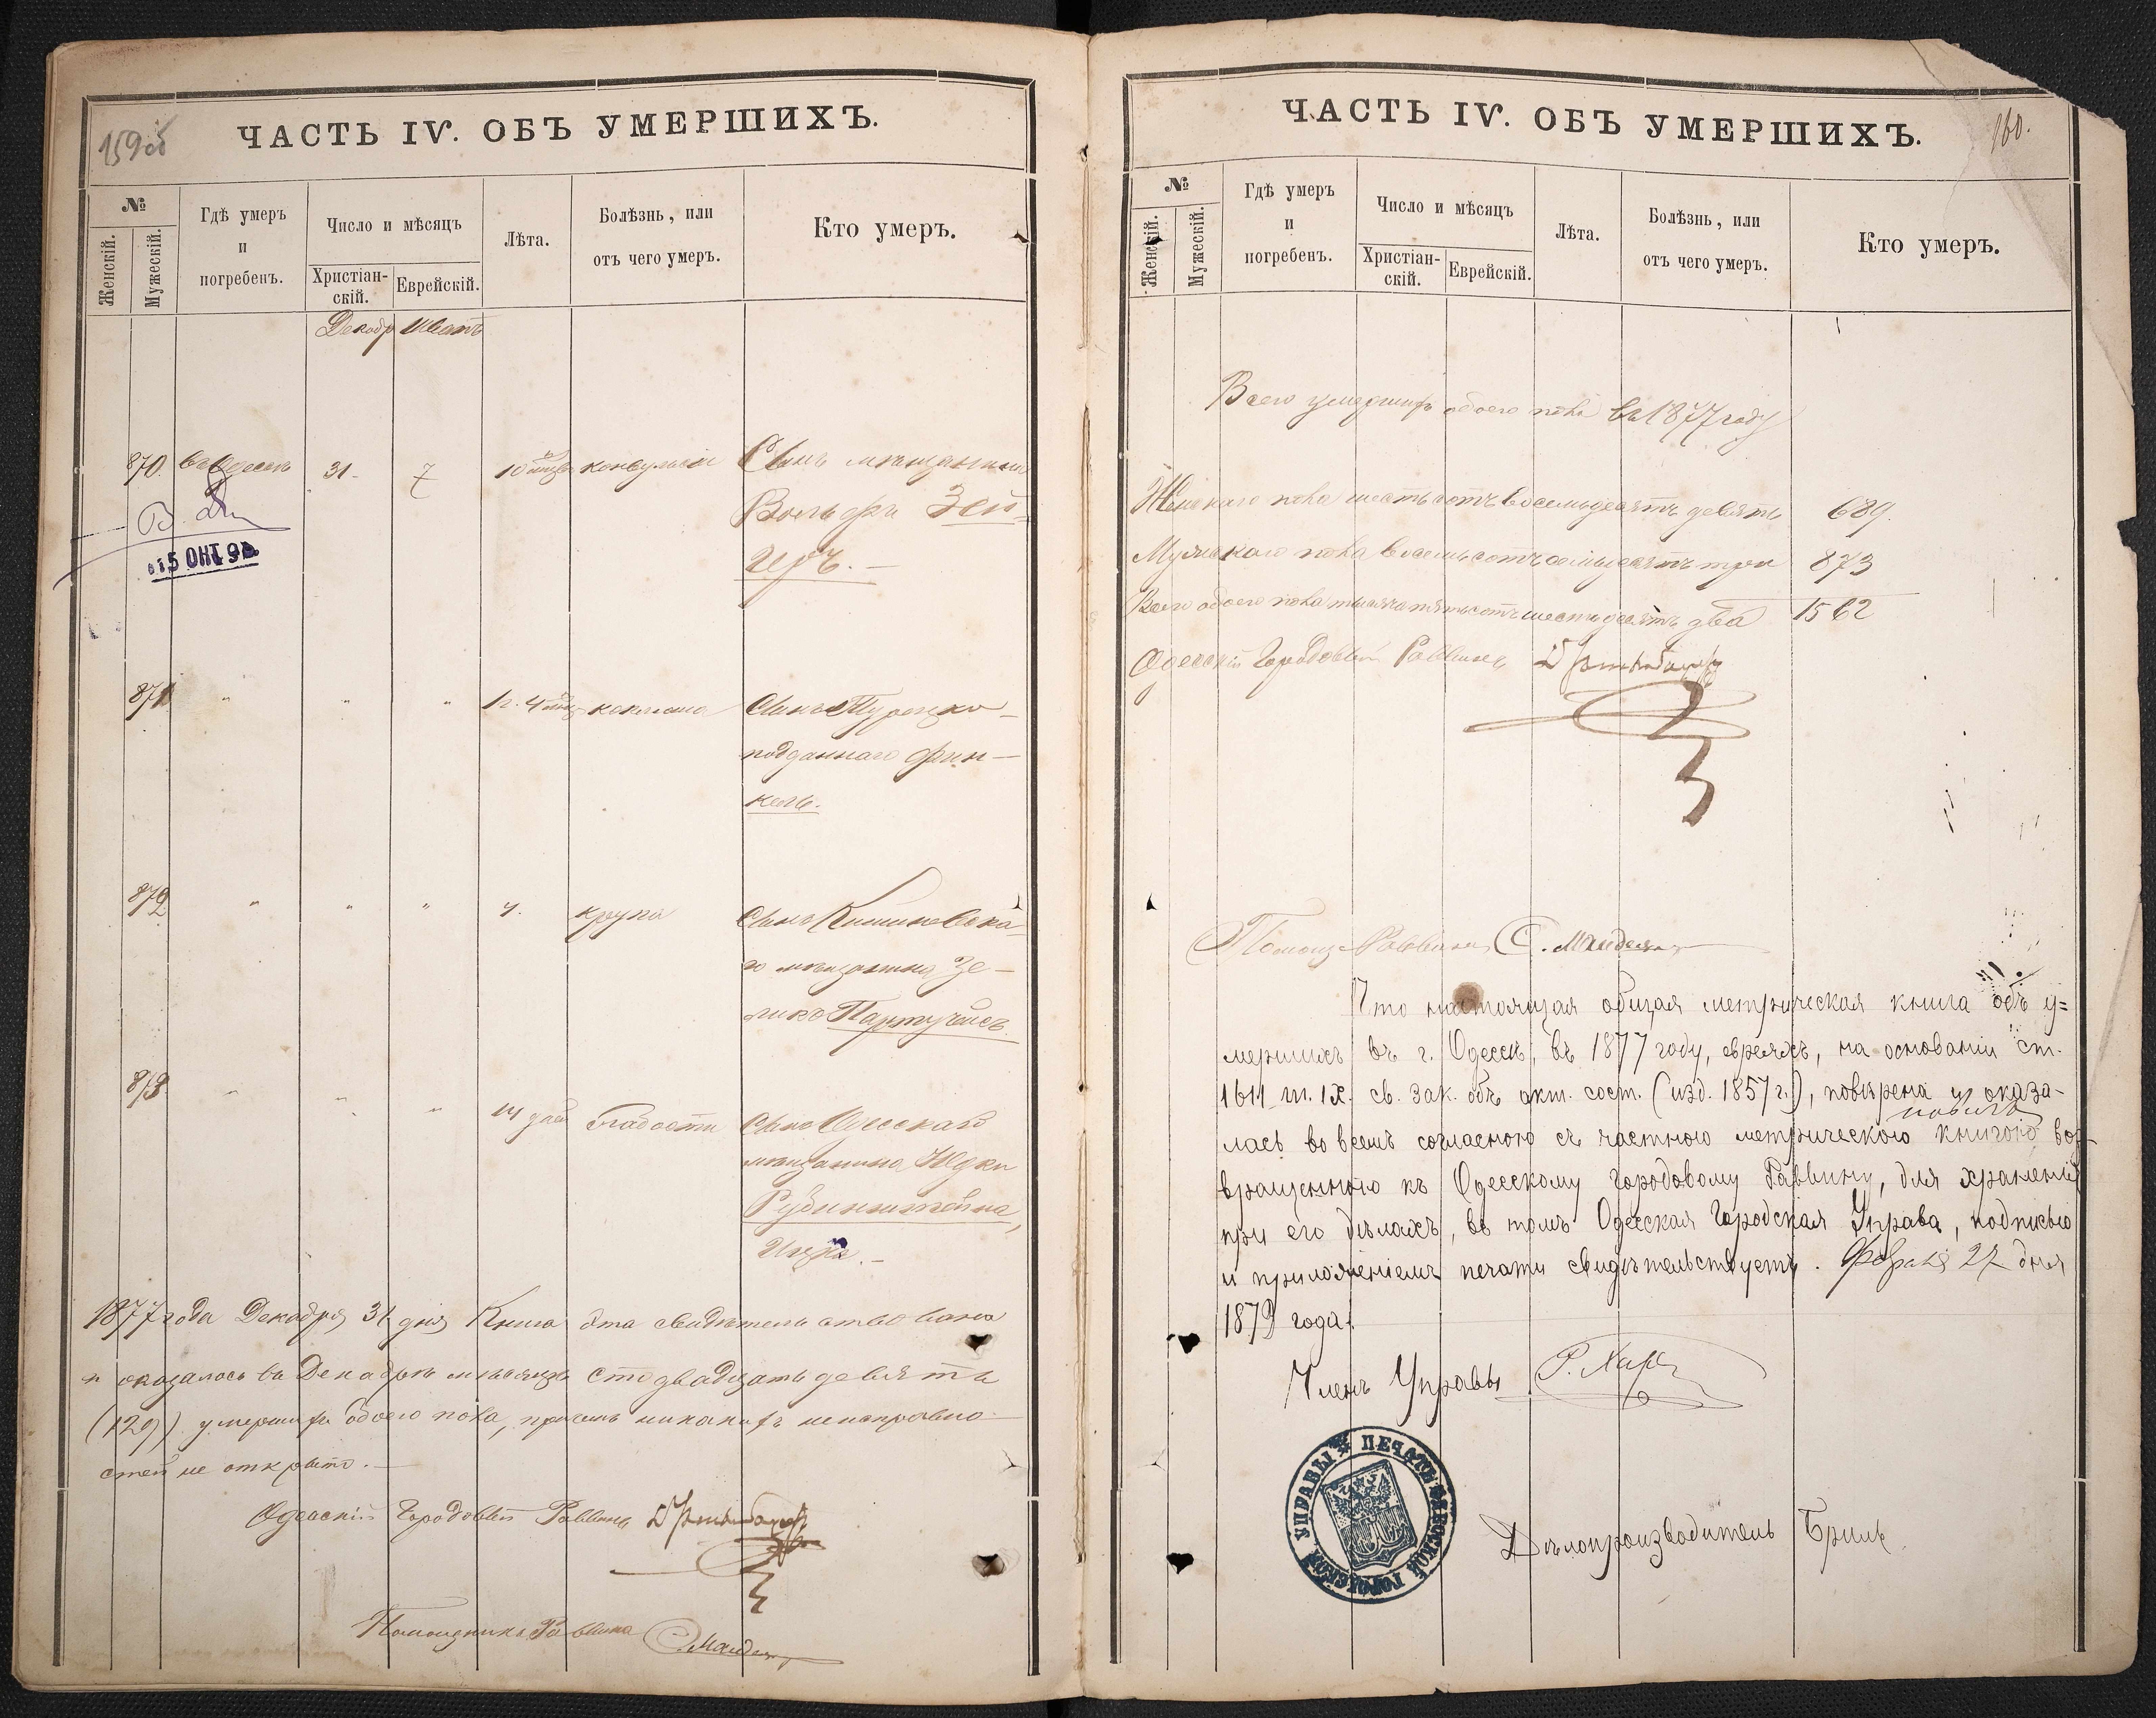 159об
ЧАСТЬ IV. ОБЪ УМЕРШИХЪ.
№
Женскій.
Мужескій.
Гдѣ умеръ
и
погребенъ.
Число и мѣсяцъ
Христіан-
скій.
Еврейскій.
Лѣта.
Болѣзнь, или
отъ чего умеръ.
Кто умеръ.
Декабр Шватъ
870. въ Одессѣ 31. 7 10 мѣц конвульсіи Сынъ мѣщанина
Вольфа Зей-
геръ. —
15 ОКТ 9
871 " " " 1 г. 4 мѣц коклюша Сынъ Турецко-
подданнаго Фин-
кель.
872 " " " 4. крупа Сынъ Кишиневска-
го мѣщанина Зе-
лика Партугейсъ.
873 " " " 14 дней слабости Сынъ Одесскаго
мѣщанина Юдки
Рубинштейна,
Ицко. —
1877 года Декабря 31 дня Книга эта свидѣтельствована
и оказалось въ Декабрѣ мѣсяцѣ сто двадцать девять
(129) умершихъ обоего пола, причемъ никакихъ неисправно-
стей не открыто. —
Одесскій Городовый Раввинъ
Помощникъ Раввина С. Мандел
160.
ЧАСТЬ IV. ОБЪ УМЕРШИХЪ.
№
Женскій.
Мужескій.
Гдѣ умеръ
и
погребенъ.
Число и мѣсяцъ
Христіан-
скій.
Еврейскій.
Лѣта.
Болѣзнь, или
отъ чего умеръ.
Кто умеръ.
Всего умершихъ обоего пола въ 1877 году
Женскаго пола шестьсотъ восемьдесятъ девять 689.
Мужескаго пола восемьсотъ семьдесятъ три 873
Всего обоего пола тысяча пятьсотъ шестьдесятъ два 1562
Одесскій Городовый Раввинъ
Помощ Раввина С. Мандел
Что настоящая общая метрическая книга объ у=
мершихъ въ г. Одессѣ, въ 1877 году, евреяхъ, на основаніи ст.
1611 т. IX. св. зак. объ акт. сост. (изд. 1857 г.), повѣрена и оказа-
лась во всемъ согласною съ частною метрическою книгою воз-
вращенною къ Одесскому Городовому Раввину, для храненія
при его дѣлахъ, въ томъ Одесская Городская Управа, подписью
и приложеніемъ печати свидѣтельствуетъ. Февраля 27 дня
1879 года.
Членъ Управы
ПЕЧАТЬ ОДЕССКОЙ ГОРОДСКОЙ УПРАВЫ
Дѣлопроизводитель Бриль